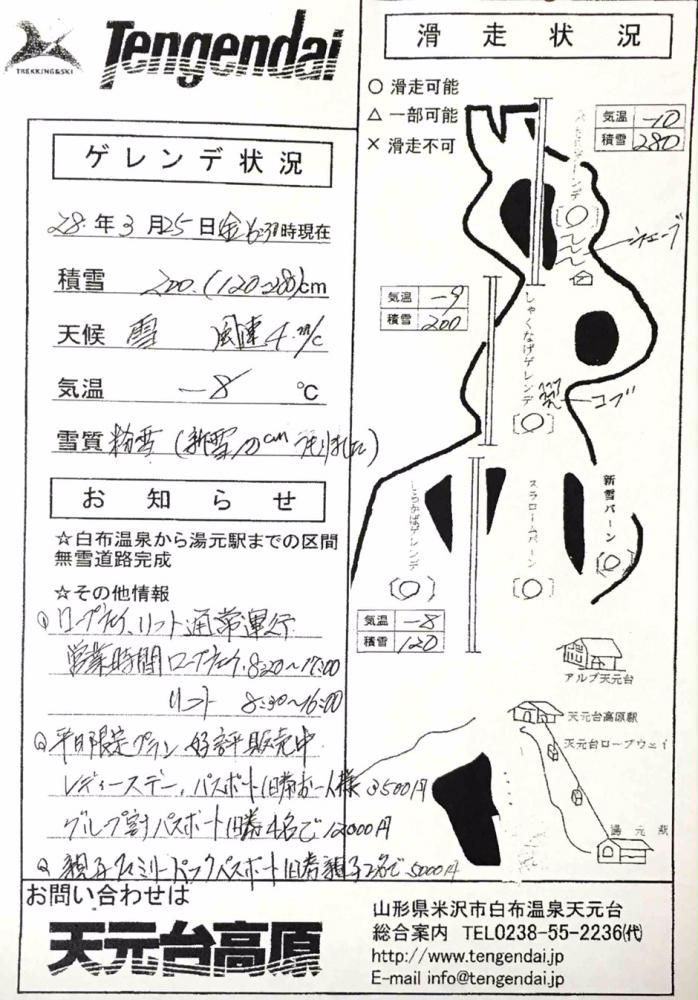 TREKKING&SKI
Tengendai
ゲレンデ状況
28年3月25日(金)6:30時現在
積雪 200.(120-280)cm
天候 雪 風速4m/s
気温 -8 ℃
雪質 粉雪(新雪10cm
お知らせ
☆白布温泉から湯元駅までの区間
無雪道路完成
☆その他情報
ロープウェイ、リフト通常運行
営業時間 ロープウェイ 8:20～17:00
リフト 8:30～16:00
平日限定プラン 好評販売中
レディースデー、パスポート1日券お一人様 3500円
グループ割パスポート1日券4名で12000円
親子ファミリーパックパスポート1日券親子2名で5000円
お問い合わせは
天元台高原
滑走状況
○ 滑走可能
△ 一部可能
× 滑走不可
気温 -10
積雪 280
ゲレンデ
(○)
シェーブ
気温 -9
積雪 200
しゃくなげゲレンデ
コブ
(○)
しらかばゲレンデ
(○)
スラロームバーン
(○)
新雪バーン
(○)
気温 -8
積雪 120
アルブ天元台
天元台高原駅
天元台ロープウェイ
湯元駅
山形県米沢市白布温泉天元台
総合案内 TEL0238-55-2236(代)
http://www.tengendai.jp
E-mail info@tengendai.jp